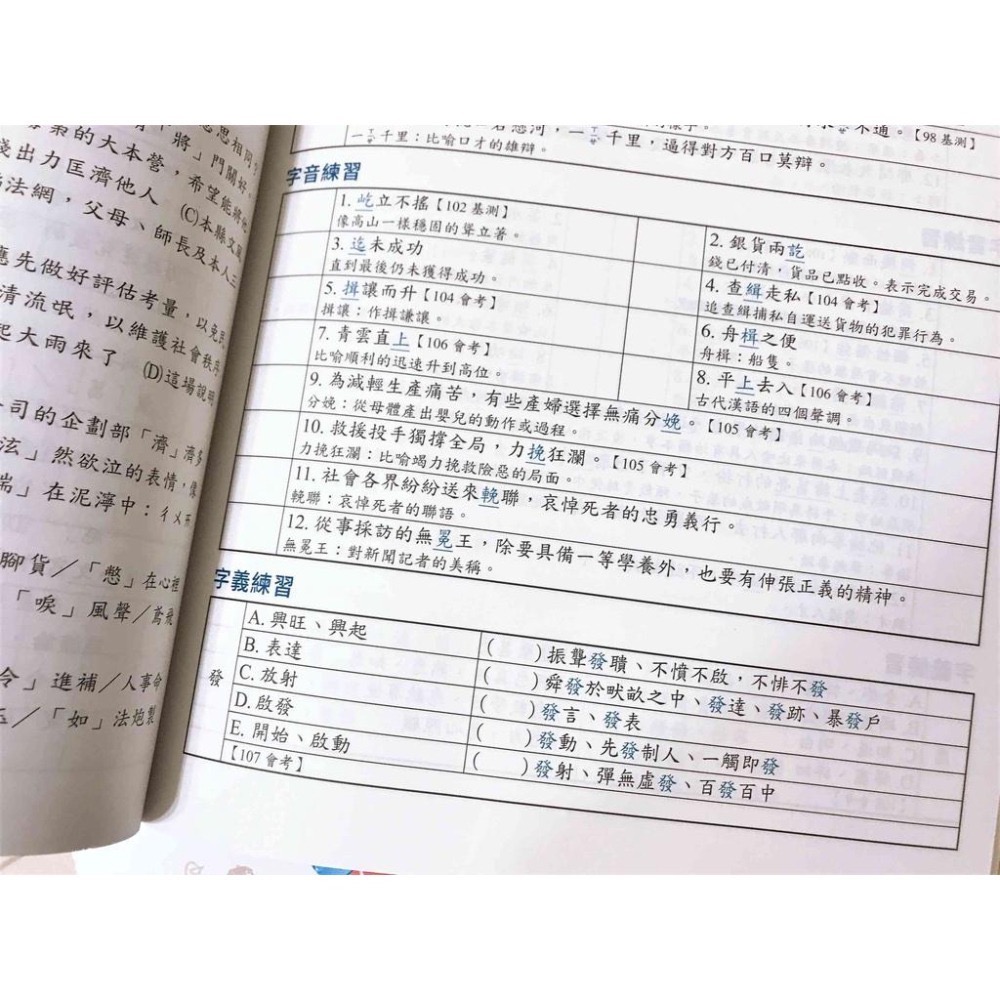 思相同?
的大本營,希望能將他
出力匡濟他人 (C)本縣文風
法網,父母、師長及本人三
應先做好評估考量,以免民
清流氓,以維護社會秩序
起大雨來了 (D)這場說明
司的企劃部「濟」濟多
泫」然欲泣的表情,像
喘」在泥濘中:ㄔㄨㄞ
腳貨/「憋」在心裡
「唳」風聲/鳶飛
令」進補/人事命
/「如」法炮製
千里,逼得對方百口莫辯。
不通。【98 基測】
千里:比喻口才的雄辯。
字音練習
1. 屹立不搖【102 基測】
像高山一樣穩固的聳立著。
2. 銀貨兩訖
錢已付清,貨品已點收。表示完成交易。
3. 迄未成功
直到最後仍未獲得成功。
4. 查緝走私【104 會考】
追查緝捕私自運送貨物的犯罪行為。
5. 揖讓而升【104 會考】
揖讓:作揖謙讓。
6. 舟楫之便
舟楫:船隻。
7. 青雲直上【106 會考】
比喻順利的迅速升到高位。
8. 平上去入【106 會考】
古代漢語的四個聲調。
9. 為減輕生產痛苦,有些產婦選擇無痛分娩。【105 會考】
分娩:從母體產出嬰兒的動作或過程。
10. 救援投手獨撐全局,力挽狂瀾。【105 會考】
力挽狂瀾:比喻竭力挽救險惡的局面。
11. 社會各界紛紛送來輓聯,哀悼死者的忠勇義行。
輓聯:哀悼死者的聯語。
12. 從事採訪的無冕王,除要具備一等學養外,也要有伸張正義的精神。
無冕王:對新聞記者的美稱。
字義練習
發
A. 興旺、興起
B. 表達
C. 放射
D. 啟發
E. 開始、啟動
【107 會考】
( )振聾發聵、不憤不啟,不悱不發
( )舜發於畎畝之中、發達、發跡、暴發戶
( )發言、發表
( )發動、先發制人、一觸即發
( )發射、彈無虛發、百發百中